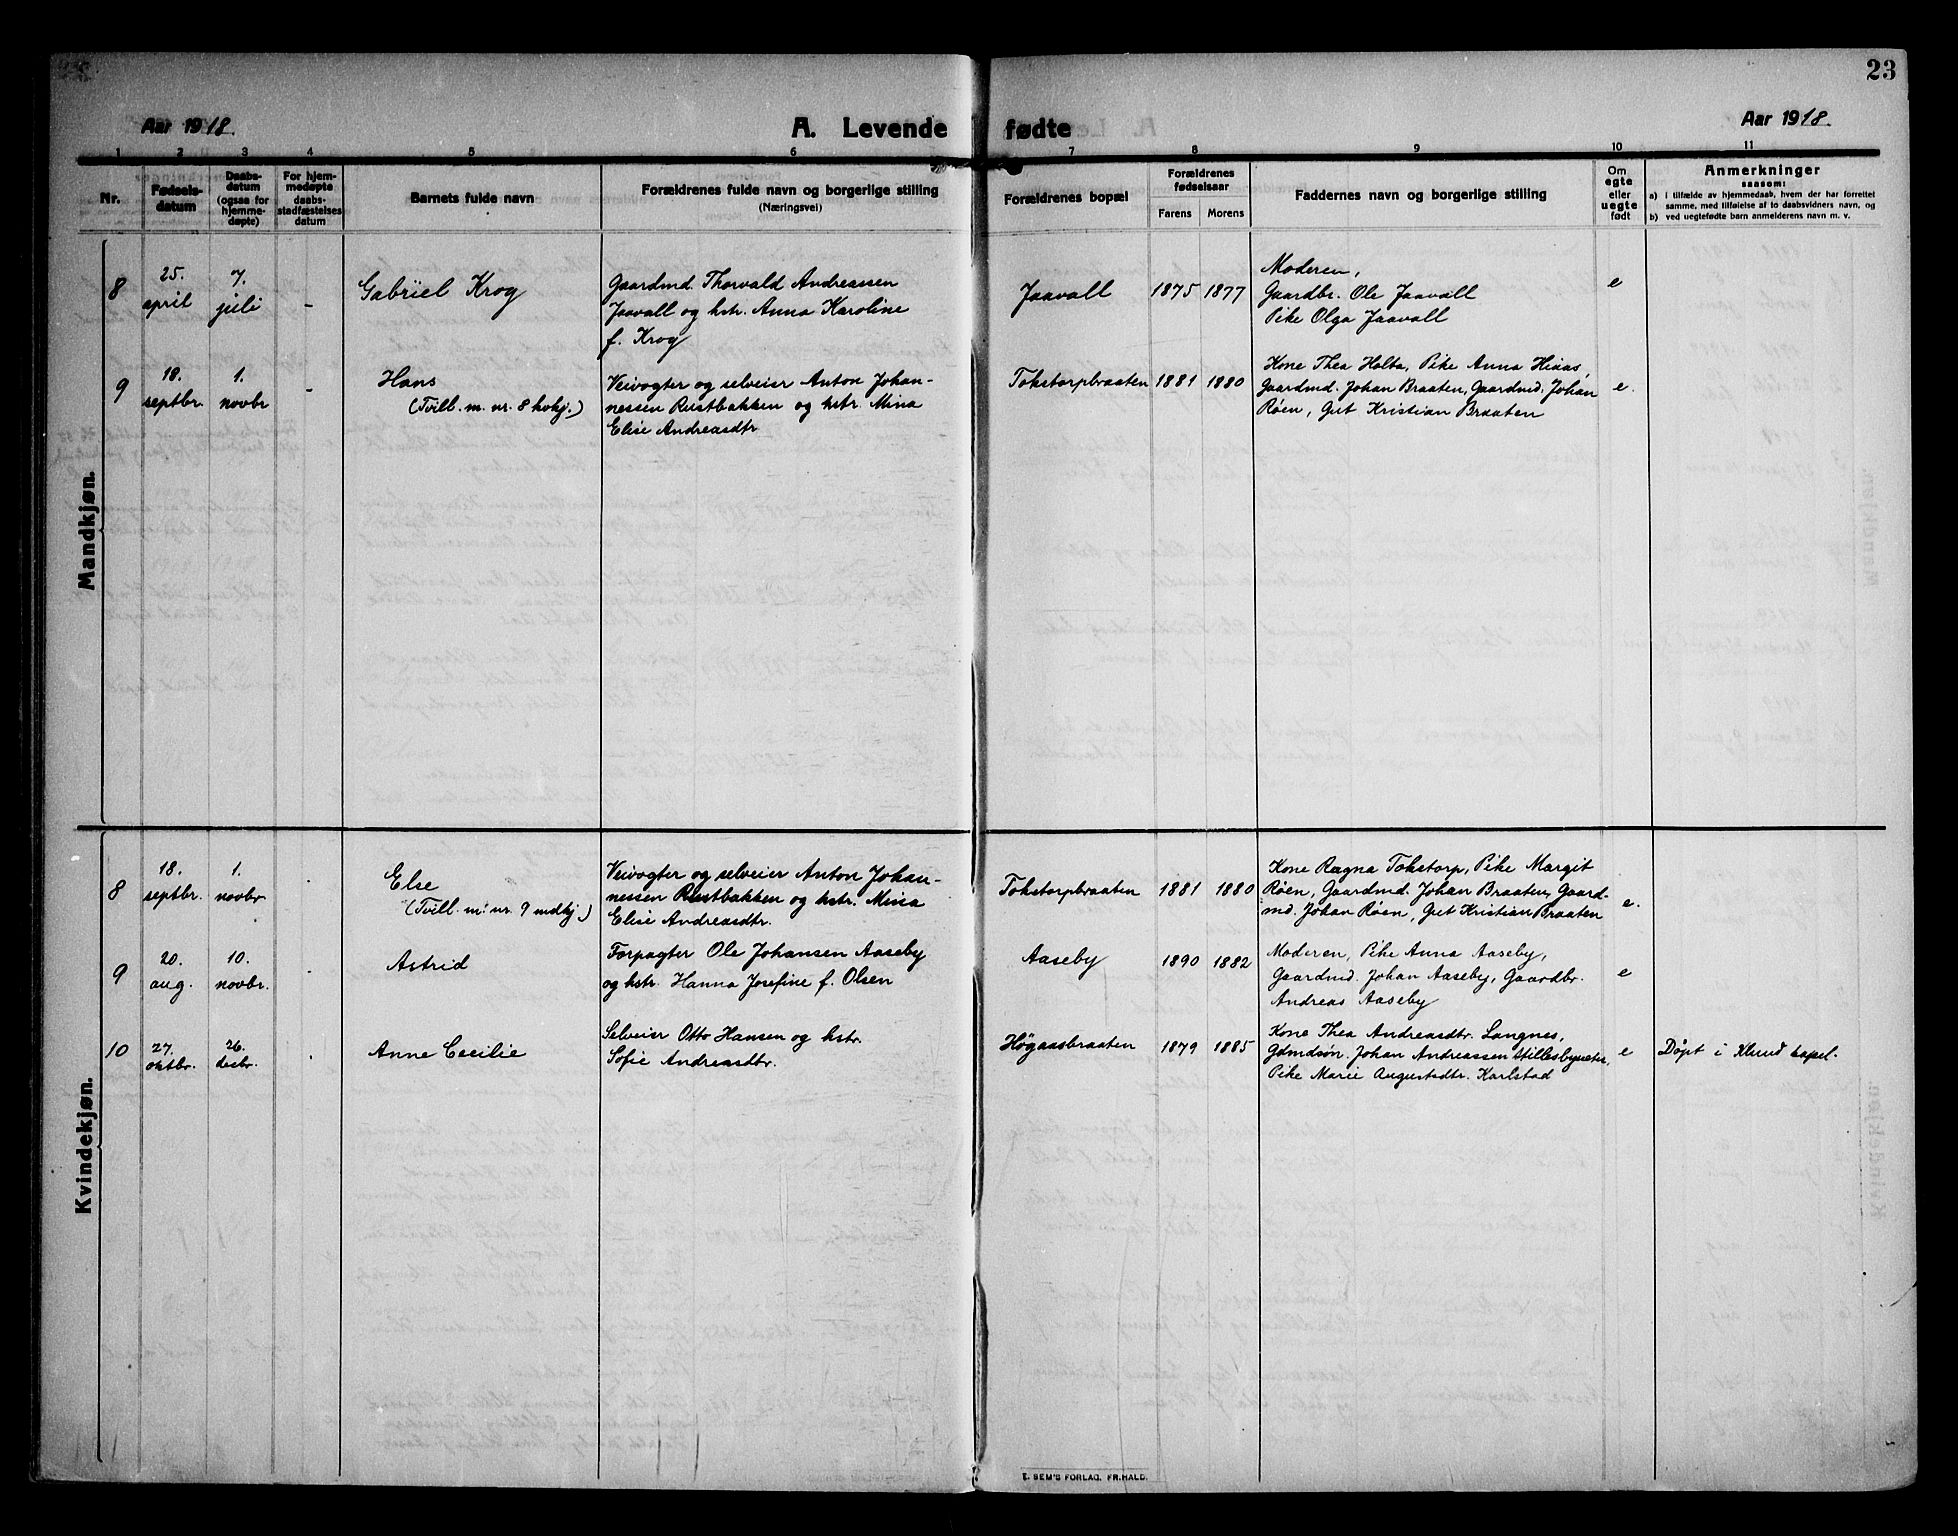 23
Aar 1918.
A. Levende fødte
Aar 1918.
1 2 3 4 5 6 7 8 9 10 11
Nr.
Fødsels-
datum
Daabs-
datum
(ogsaa for
hjemme-
døpte)
For hjem-
medøpte
daabs-
stadfæstelses
datum
Barnets fulde navn
Forældrenes fulde navn og borgerlige stilling
(Næringsvei)
Forældrenes bopæl
Forældrenes
fødselsaar
Farens Morens
Faddernes navn og borgerlige stilling
Om
egte
eller
uegte
født
Anmerkninger
saasom:
a) i tilfælde av hjemmedaab, hvem der har forrettet
samme, med tilføielse af to daabsvidners navn, og
b) ved uegtefødte barn anmelderens navn m. v.
Mandkjøn.
8
25.
april
7.
juli
-
Gabriel Krog
Gaardmd. Thorvald Andreassen
Jaavall og hstr. Anna Karoline
f. Krog
Jaavall
1875 1877
Moderen,
Gaardbr. Ole Jaavall
Pike Olga Jaavall
e
9
18.
septbr.
1.
novbr
-
Hans
(Tvill. m. nr. 8 kvkj.)
Veivogter og selveier Anton Johan-
nessen Rustbakken og hstr. Mina
Elise Andreasdtr
Tokstorpbraaten
1881 1880
Kone Thea Holta, Pike Anna Hiaas,
Gaardmd. Johan Braaten, Gaardmd. Johan
Røen, Gut Kristian Braaten
e.
Kvindekjøn.
8
18.
septbr.
1.
novbr
.
Else
(Tvill. m. nr. 9 mdkj.)
Veivogter og selveier Anton Johan-
nessen Rustbakken og hstr. Mina
Elise Andreasdtr.
Tokstorpbraaten
1881 1880
Kone Ragna Tokstorp, Pike Margit
Røen, Gaardmd. Johan Braaten, Gaard-
md. Johan Røen, Gut Kristian Braaten
e.
9
20.
aug.
10.
novbr.
.
Astrid
Forpagter Ole Johansen Aaseby
og hstr. Hanna Josefine f. Olsen
Aaseby
1890 1882
Moderen, Pike Anna Aaseby,
Gaardmd. Johan Aaseby, Gaardbr.
Andreas Aaseby
e
10
27.
oktbr.
26.
desbr.
.
Anne Cecilie
Selveier Otto Hansen og hstr.
Sofie Andreasdtr.
Høgaasbraaten
1879 1885
Kone Thea Andreasdtr. Langnes,
Gdmdsøn. Johan Andreassen Stillesbyneter,
Pike Marie Augustadtr. Karlstad
e
Døpt i Klund kapel.
E. SEM'S FORLAG, FR.HALD.